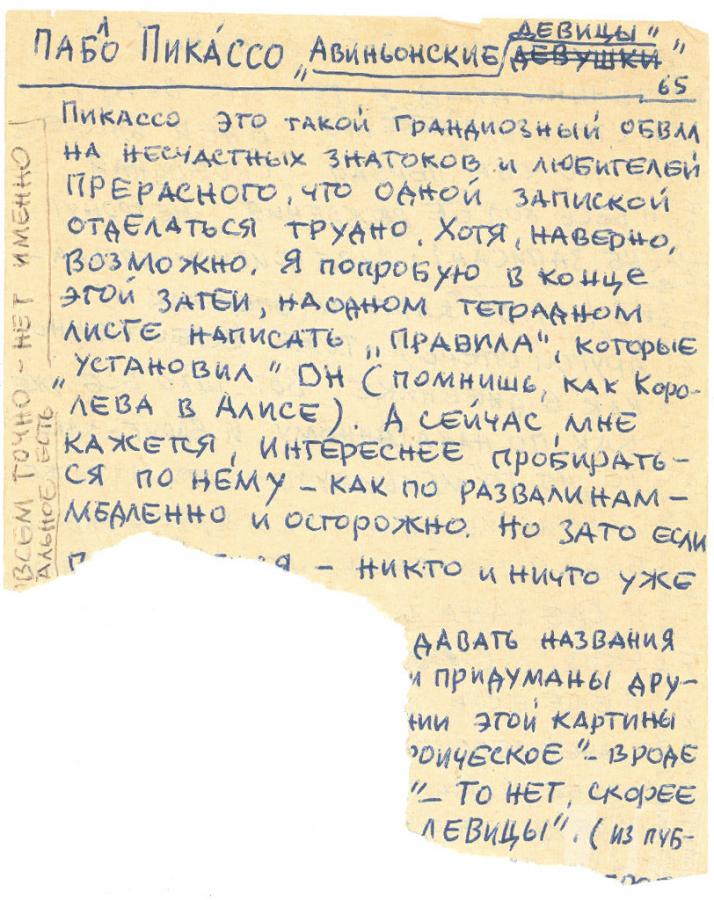 ПАБЛО ПИКАССО „АВИНЬОНСКИЕ ДЕВИЦЫ"
ДЕВУШКИ"
65
ПИКАССО ЭТО ТАКОЙ ГРАНДИОЗНЫЙ ОБВАЛ
НА НЕСЧАСТНЫХ ЗНАТОКОВ И ЛЮБИТЕЛЕЙ
ПРЕРАСНОГО, ЧТО ОДНОЙ ЗАПИСКОЙ
ОТДЕЛАТЬСЯ ТРУДНО. ХОТЯ, НАВЕРНО,
ВОЗМОЖНО. Я ПОПРОБУЮ В КОНЦЕ
ЭТОЙ ЗАТЕИ, НА ОДНОМ ТЕТРАДНОМ
ЛИСТЕ НАПИСАТЬ „ПРАВИЛА", КОТОРЫЕ
„УСТАНОВИЛ" ОН (ПОМНИШЬ, КАК КОРО-
ЛЕВА В АЛИСЕ). А СЕЙЧАС, МНЕ
КАЖЕТСЯ, ИНТЕРЕСНЕЕ ПРОБИРАТЬ-
СЯ ПО НЕМУ – КАК ПО РАЗВАЛИНАМ –
МЕДЛЕННО И ОСТОРОЖНО. НО ЗАТО ЕСЛИ
– НИКТО И НИЧТО УЖЕ
ДАВАТЬ НАЗВАНИЯ
И ПРИДУМАНЫ ДРУ-
НИИ ЭТОЙ КАРТИНЫ
РОИЧЕСКОЕ" – ВРОДЕ
" – ТО НЕТ, СКОРЕЕ
ДЕВИЦЫ". (ИЗ ПУБ-
ОВСЕМ ТОЧНО – НЕТ ИМЕННО
АЛЬНОЕ ЕСТЬ